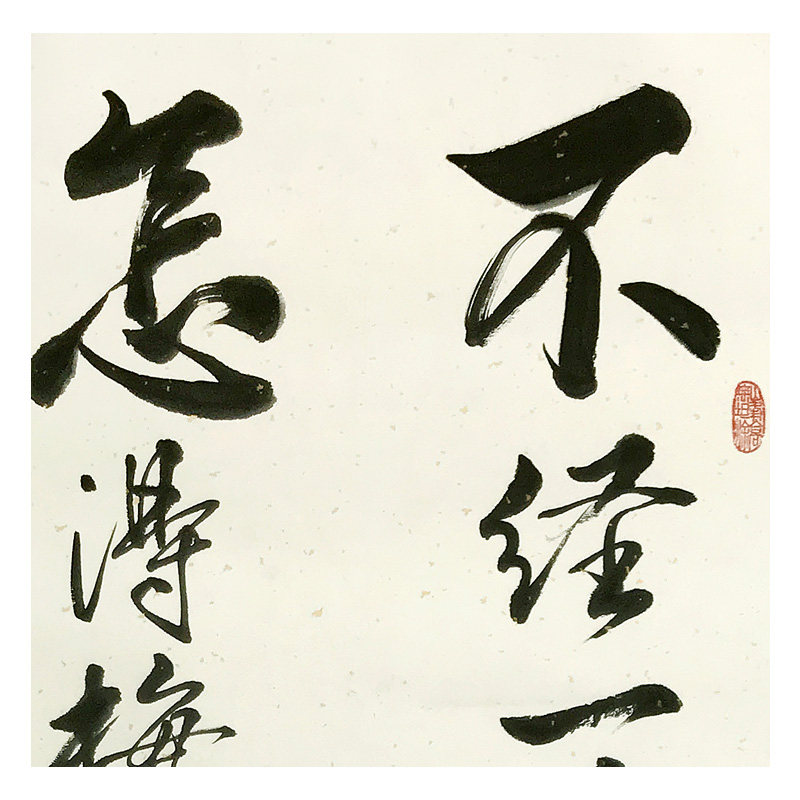 不经一
怎得梅